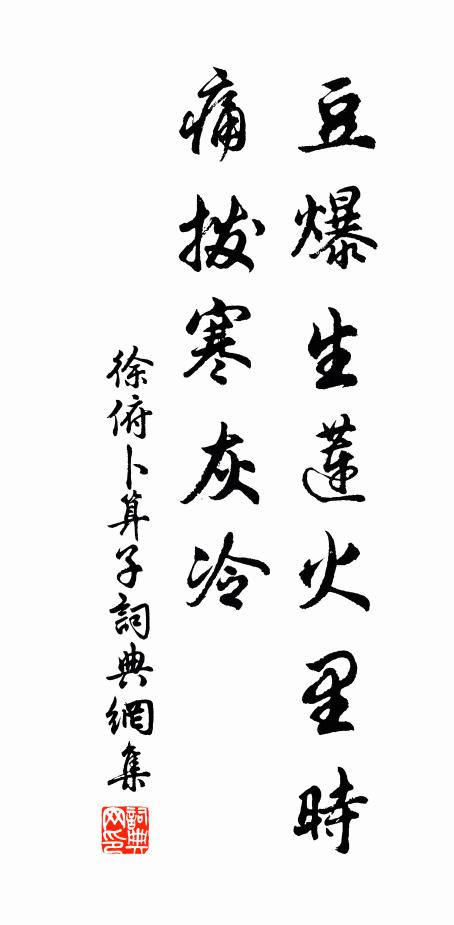 豆爆生蓮火里時
痛撥寒灰冷
徐俯卜算子詞典網集
詞典網印